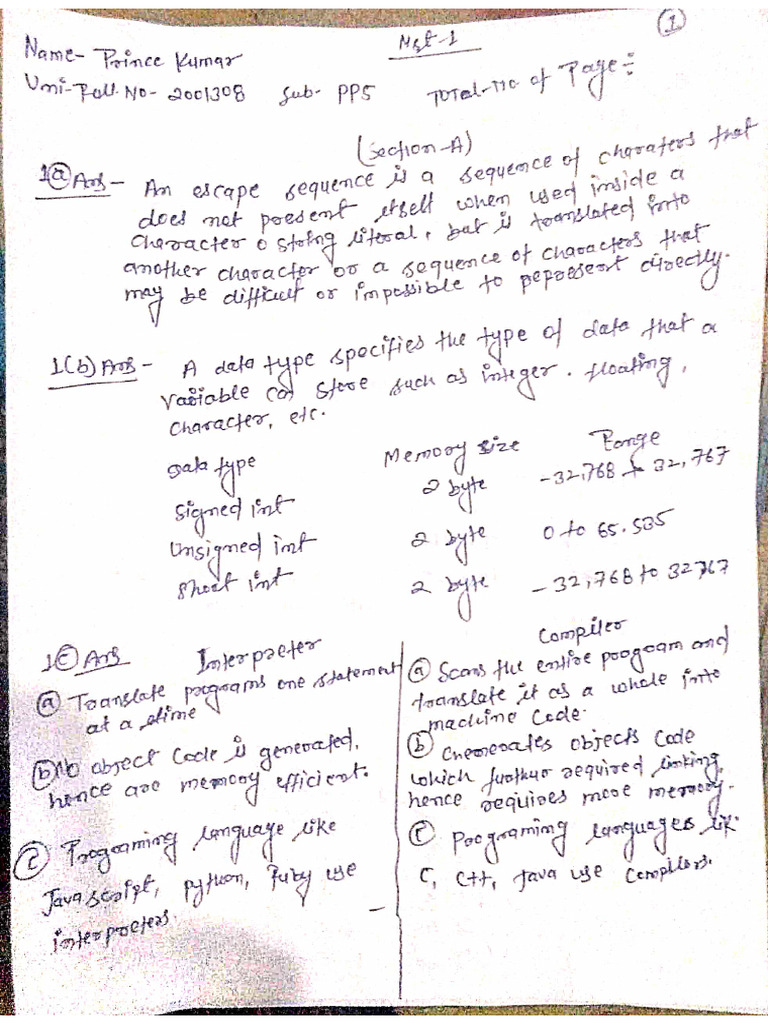 1
Name- Prince Kumar
Mst-1
Uni-Roll.No- 2001308 Sub- PPS Total-no of Page:-
(Section-A)
1(a) Ans- An escape sequence is a sequence of charaters that
does not present itself when used inside a
character o string literal, but is translated into
another character or a sequence of characters that
may be difficult or impossible to pepresent directly.
1(b) Ans- A data type specifies the type of data that a
Variable can store such as integer. floating,
Character, etc.
Data type Memory size Range
Signed int 2 byte -32,768 to 32,767
Unsigned int 2 byte 0 to 65.535
Short int 2 byte -32,768 to 32767
1(c) Ans Interpreter
(a) Translate programs one statement
at a time
(b) No object Code is generated,
hence are memory efficient.
(c) Programing language like
Javascript, python, Ruby use
interpreters.
Compiler
(a) Scans the entire program and
translate it as a whole into
machine Code.
(b) Generates objects Code
which further required linking,
hence requires more memory.
(c) Programing languages lik.
C, C++, Java use Compilers.